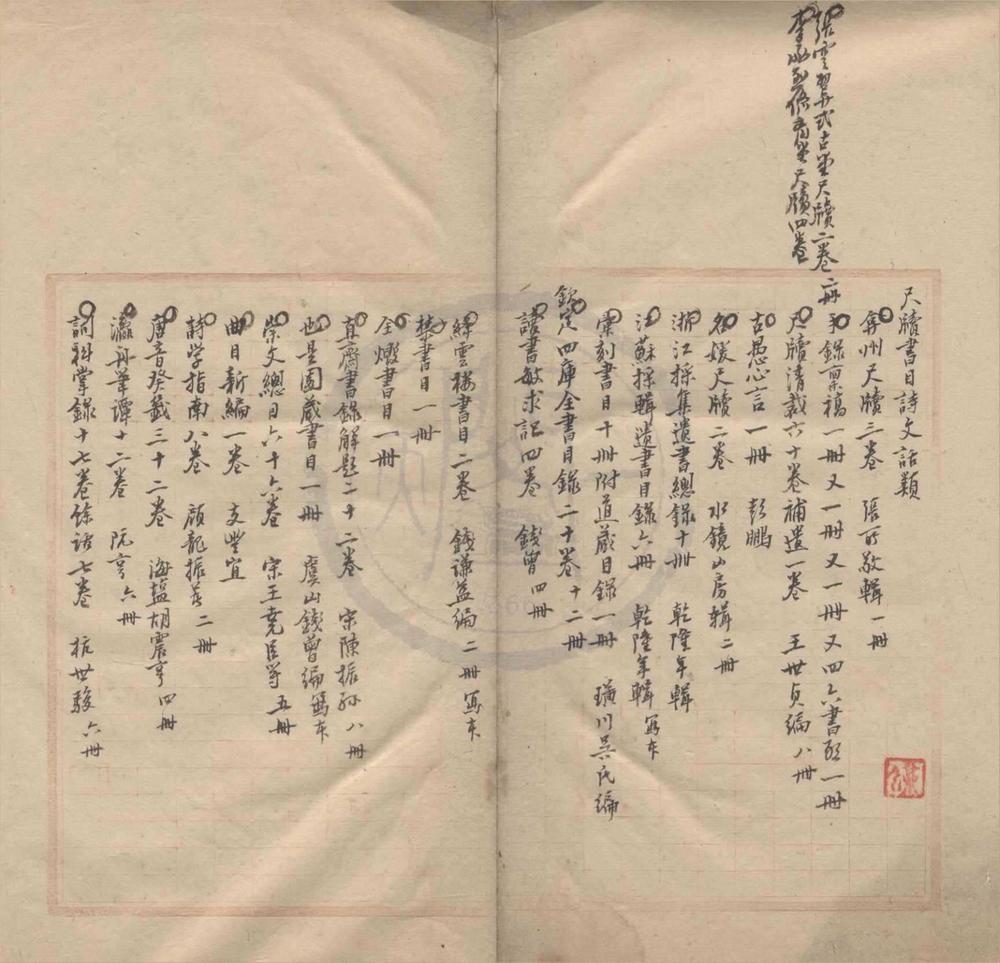 張雲翼式古堂尺牘二卷二冊
尺牘四卷
尺牘書目詩文話類
弇州尺牘三卷 張所敬輯 一冊
錄槀稿一冊又一冊又一冊又四六書啟一冊
尺牘清裁六十卷補遺一卷 王世貞編 八冊
古愚心言一冊 彭鵬
名媛尺牘二卷 水鏡山房輯 二冊
浙江採集遺書總錄十冊 乾隆年輯
江蘇採輯遺書目錄六冊 乾隆年輯 寫本
彙刻書目十冊附道藏目錄一冊 璜川吳氏編
欽定四庫全書目錄二十卷十二冊
讀書敏求記四卷 錢曾 四冊
絳雲樓書目二卷 錢謙益編 二冊 寫本
禁書目一冊
全燬書目一冊
直齋書錄解題二十二卷 宋陳振孫 八冊
也是園藏書目一冊 虞山錢曾編 寫本
崇文總目六十六卷 宋王堯臣等 五冊
曲目新編一卷 支豐宜
詩學指南八卷 顧龍振著 二冊
唐音癸籤三十二卷 海鹽胡震亨 四冊
瀛舟筆譚十二卷 阮亨 六冊
詞科掌錄十七卷餘話七卷 杭世駿 六冊